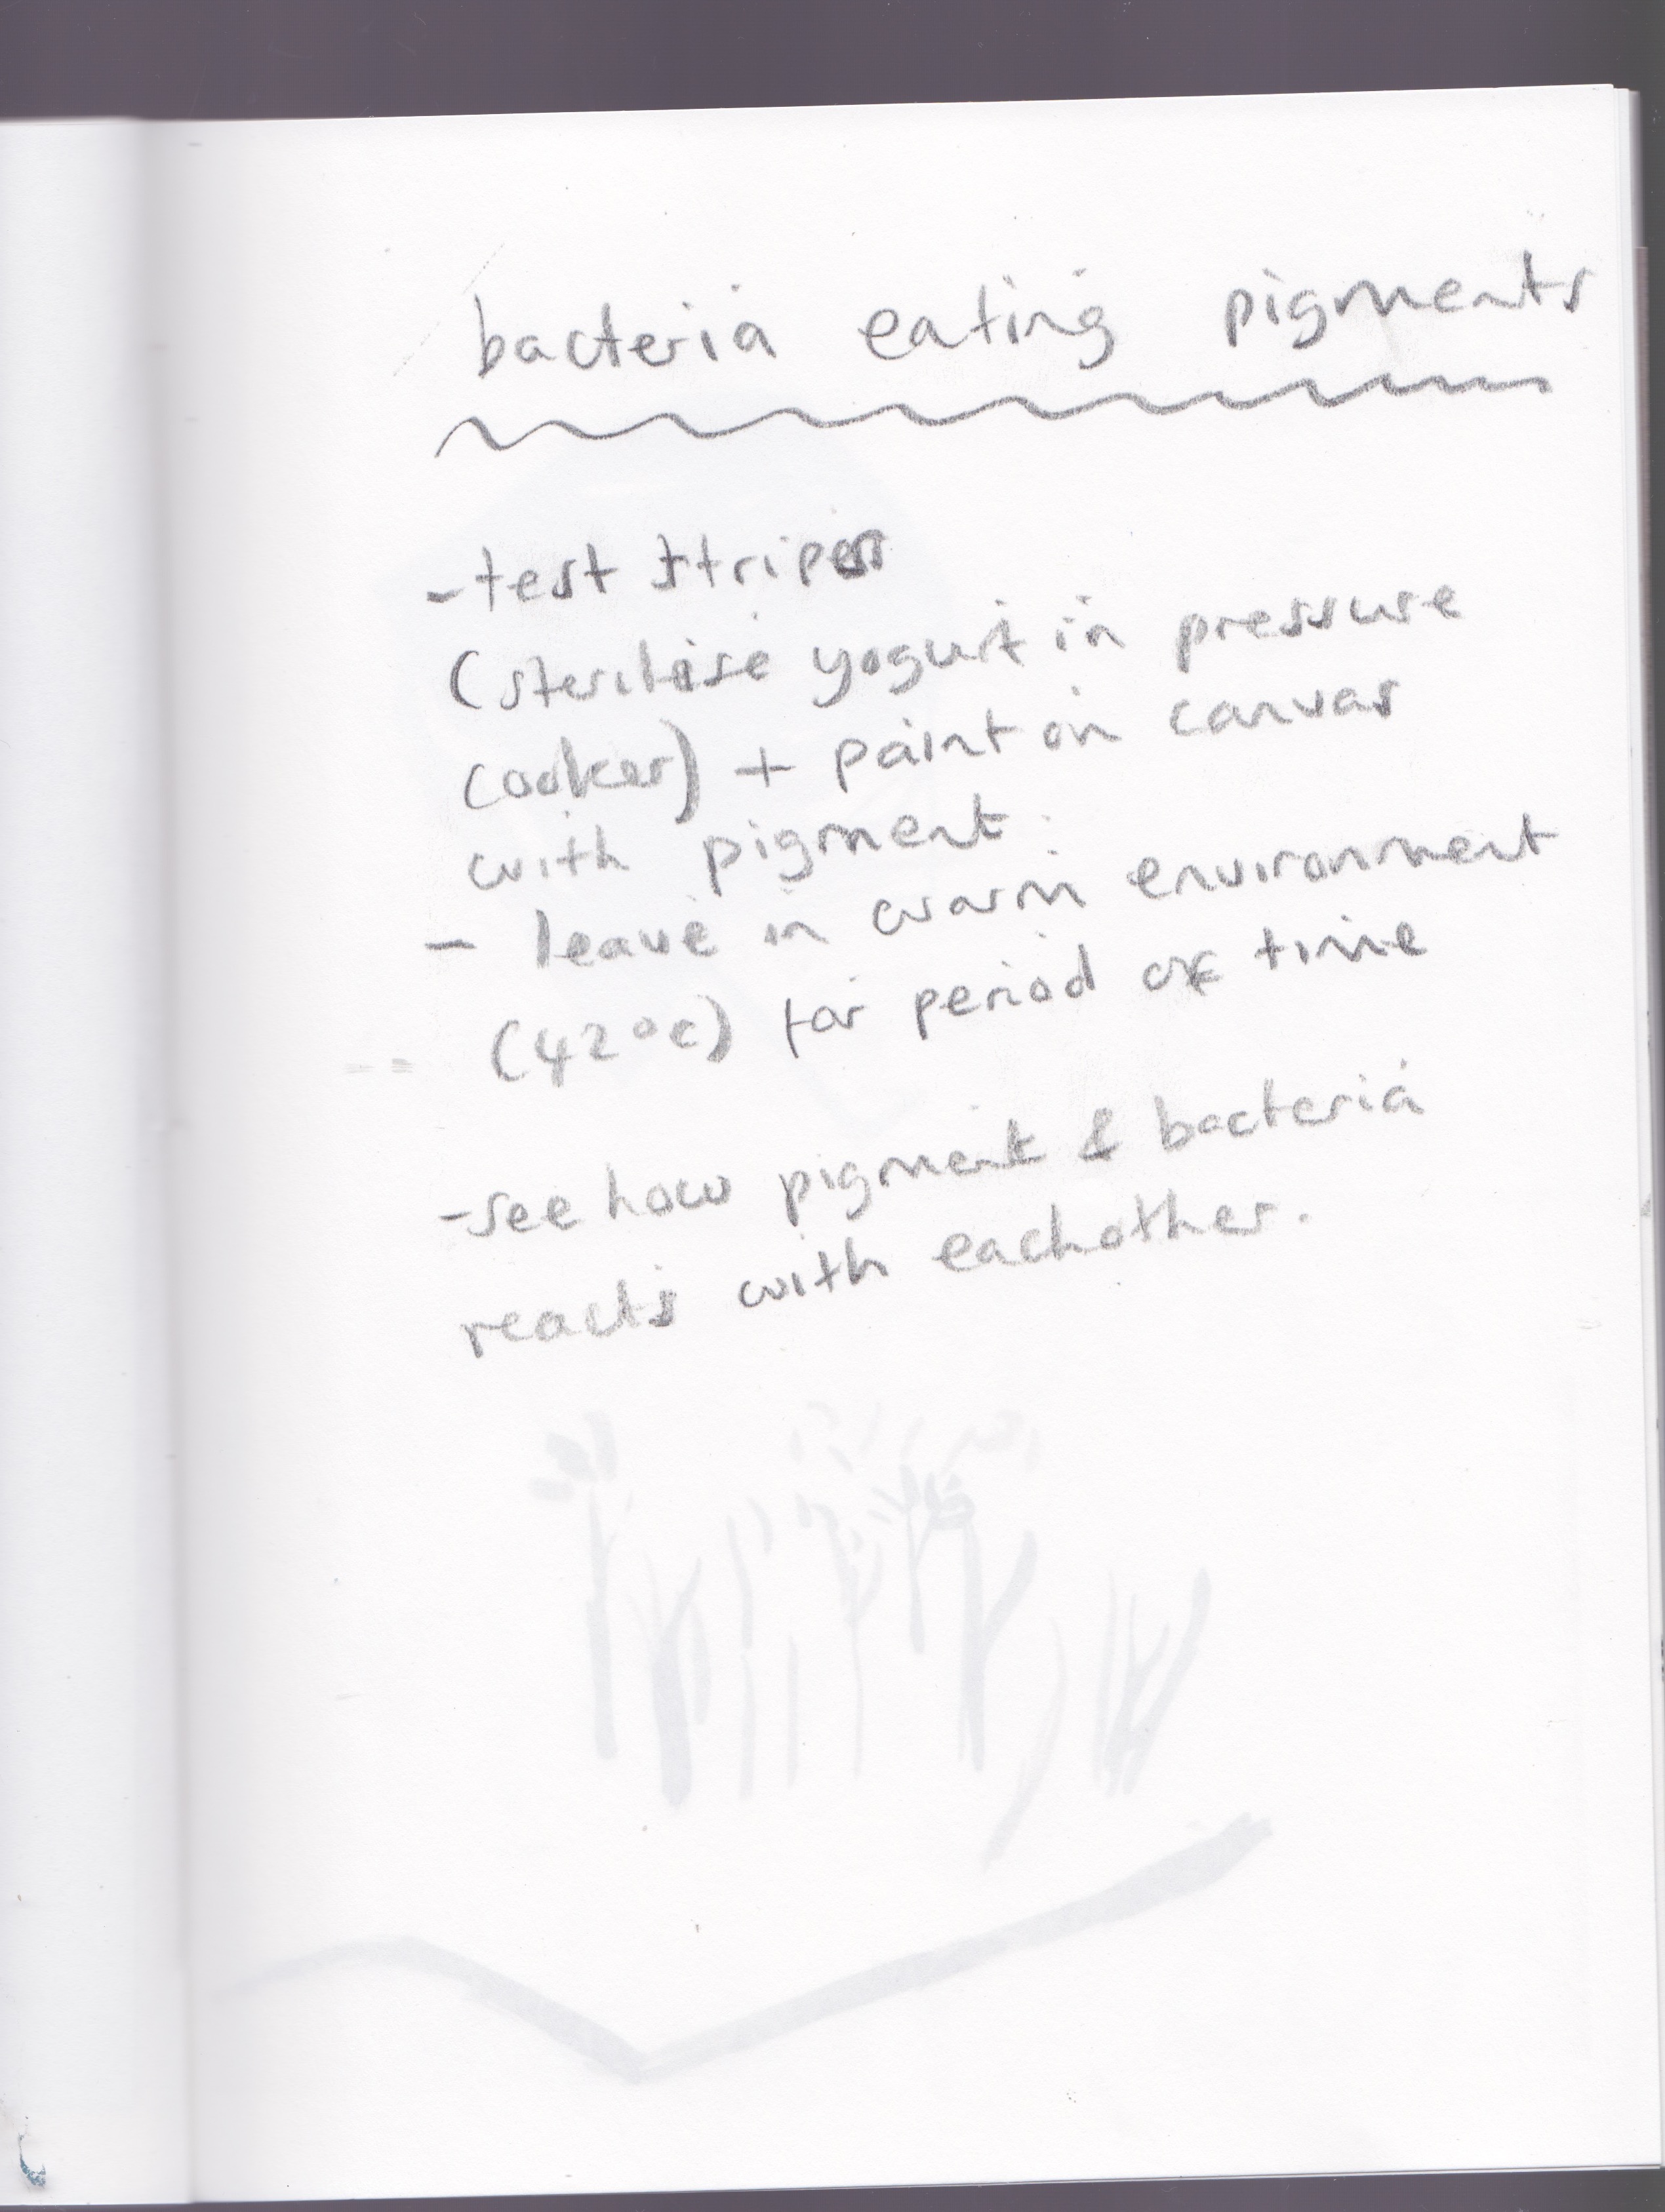 bacteria eating pigments
- test stripes
(sterilise yogurt in pressure
cooker) + paint on canvas
with pigment.
- leave in warm environment
(42°c) for period of time
- see how pigment & bacteria
reacts with eachother.